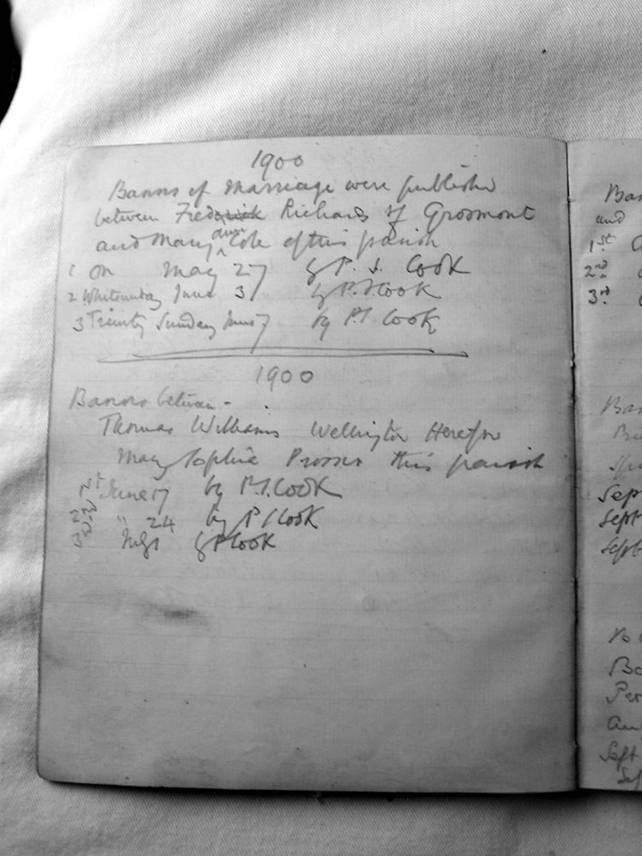 1900
Banns of Marriage were published
between Frederick Richards of Grosmont
and Mary Cole of this parish
1 on May 27 by P. J. Cook
2 Whitsunday June 3 by P. J. Cook
3 Trinity Sunday June by P J Cook
1900
Banns between -
Thomas Williams Wellington Hereford
Mary Sophia Prosser this parish
1st June 17 by P. J. Cook
2nd " 24 by P J Cook
3rd by P Cook
Ban
and
1st
2nd
3rd
Ban
Sept
Sept
Sept
Ba
Sept